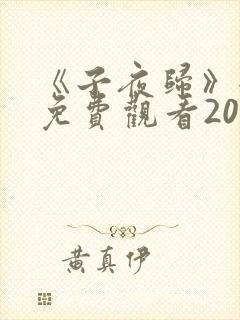 《子夜歸》
免費觀看20
黃真伊